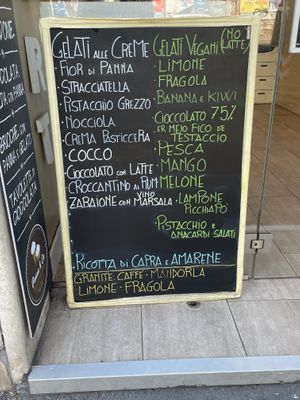 GELATI ALLE CREME
• FIOR DI PANNA
• STRACCIATELLA
• PISTACCHIO GREZZO
• NOCCIOLA
• CREMA PASTICCERA
• COCCO
• CIOCCOLATO CON LATTE
• CROCCANTINO AL RUM
ZABAIONE CON VINO MARSALA
GELATI VEGANI (NO LATTE)
• LIMONE
• FRAGOLA
• BANANA E KIWI
• CIOCCOLATO 75%
• ER MEJO FICO DE TESTACCIO
• PESCA
• MANGO
• MELONE
• LAMPONE PICCHIAPÒ
• PISTACCHIO E ANACARDI SALATI
• RICOTTA DI CAPRA E AMARENE
GRANITE: CAFFE - MANDORLA
LIMONE - FRAGOLA